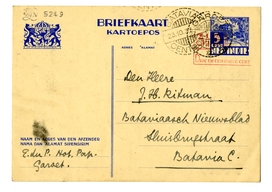 5269
BRIEFKAART
KARTOEPOS
ADRES ALAMAT
BATAVIA
CENTRUM
5
Den Heere
J. H. Ritman
Bataviaasch Nieuwsblad
Sluisbrugstraat
Batavia C.
NAAM EN ADRES VAN DEN AFZENDER
NAMA DAN ALAMAT SIPENGIRIM
E. du P. Hot. Pap.
Garoet.